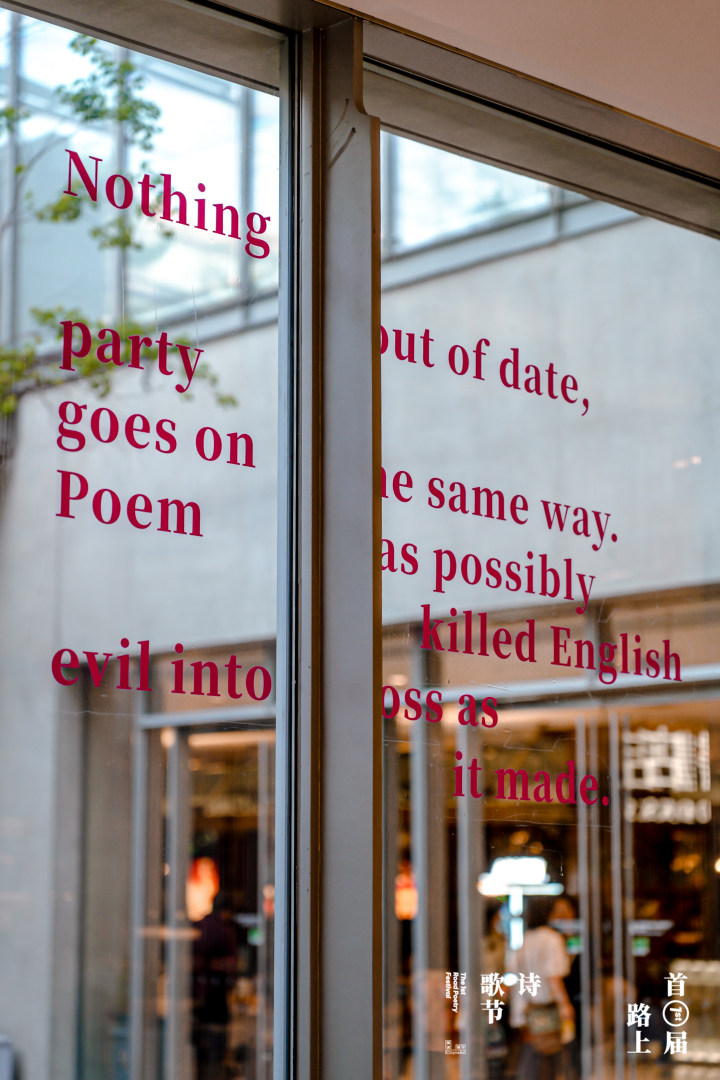 Nothing
party
goes on
Poem
evil into
out of date,
he same way.
as possibly
killed English
oss as
it made.
首届
路上
诗
歌节
The 1st
Road Poetry
Festival
1st